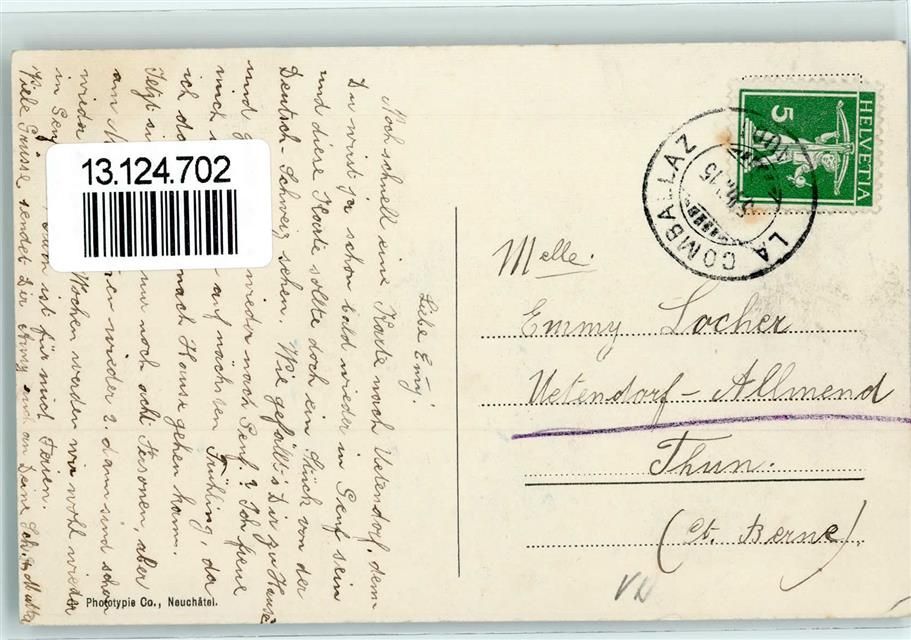 Liebe Emmy!
Noch schnell eine Karte nach Uetendorf, denn
Du wirst ja schon bald wieder in Genf sein
und diese Karte sollte doch ein Stück von der
Deutsch-Schweiz sehen. Wie gefällt's Dir zu Hause
und wieder nach Genf? Ich freue
mich auf nächsten Frühling, da
ich nach Hause gehen kann.
Jetzt nur noch acht Personen, aber
am wieder 2. dann sind schon
wieder Wochen werden wir wohl wieder
in Genf ist für mich Ferien.
Viele Grüsse sendet Dir Anny und an Deine Sch. & Mutter
Phototypie Co., Neuchâtel.
13.124.702
HELVETIA
5
LA COMBALLAZ
Melle.
Emmy Locher
Uetendorf-Allmend
Thun.
(Ct. Berne)
VD